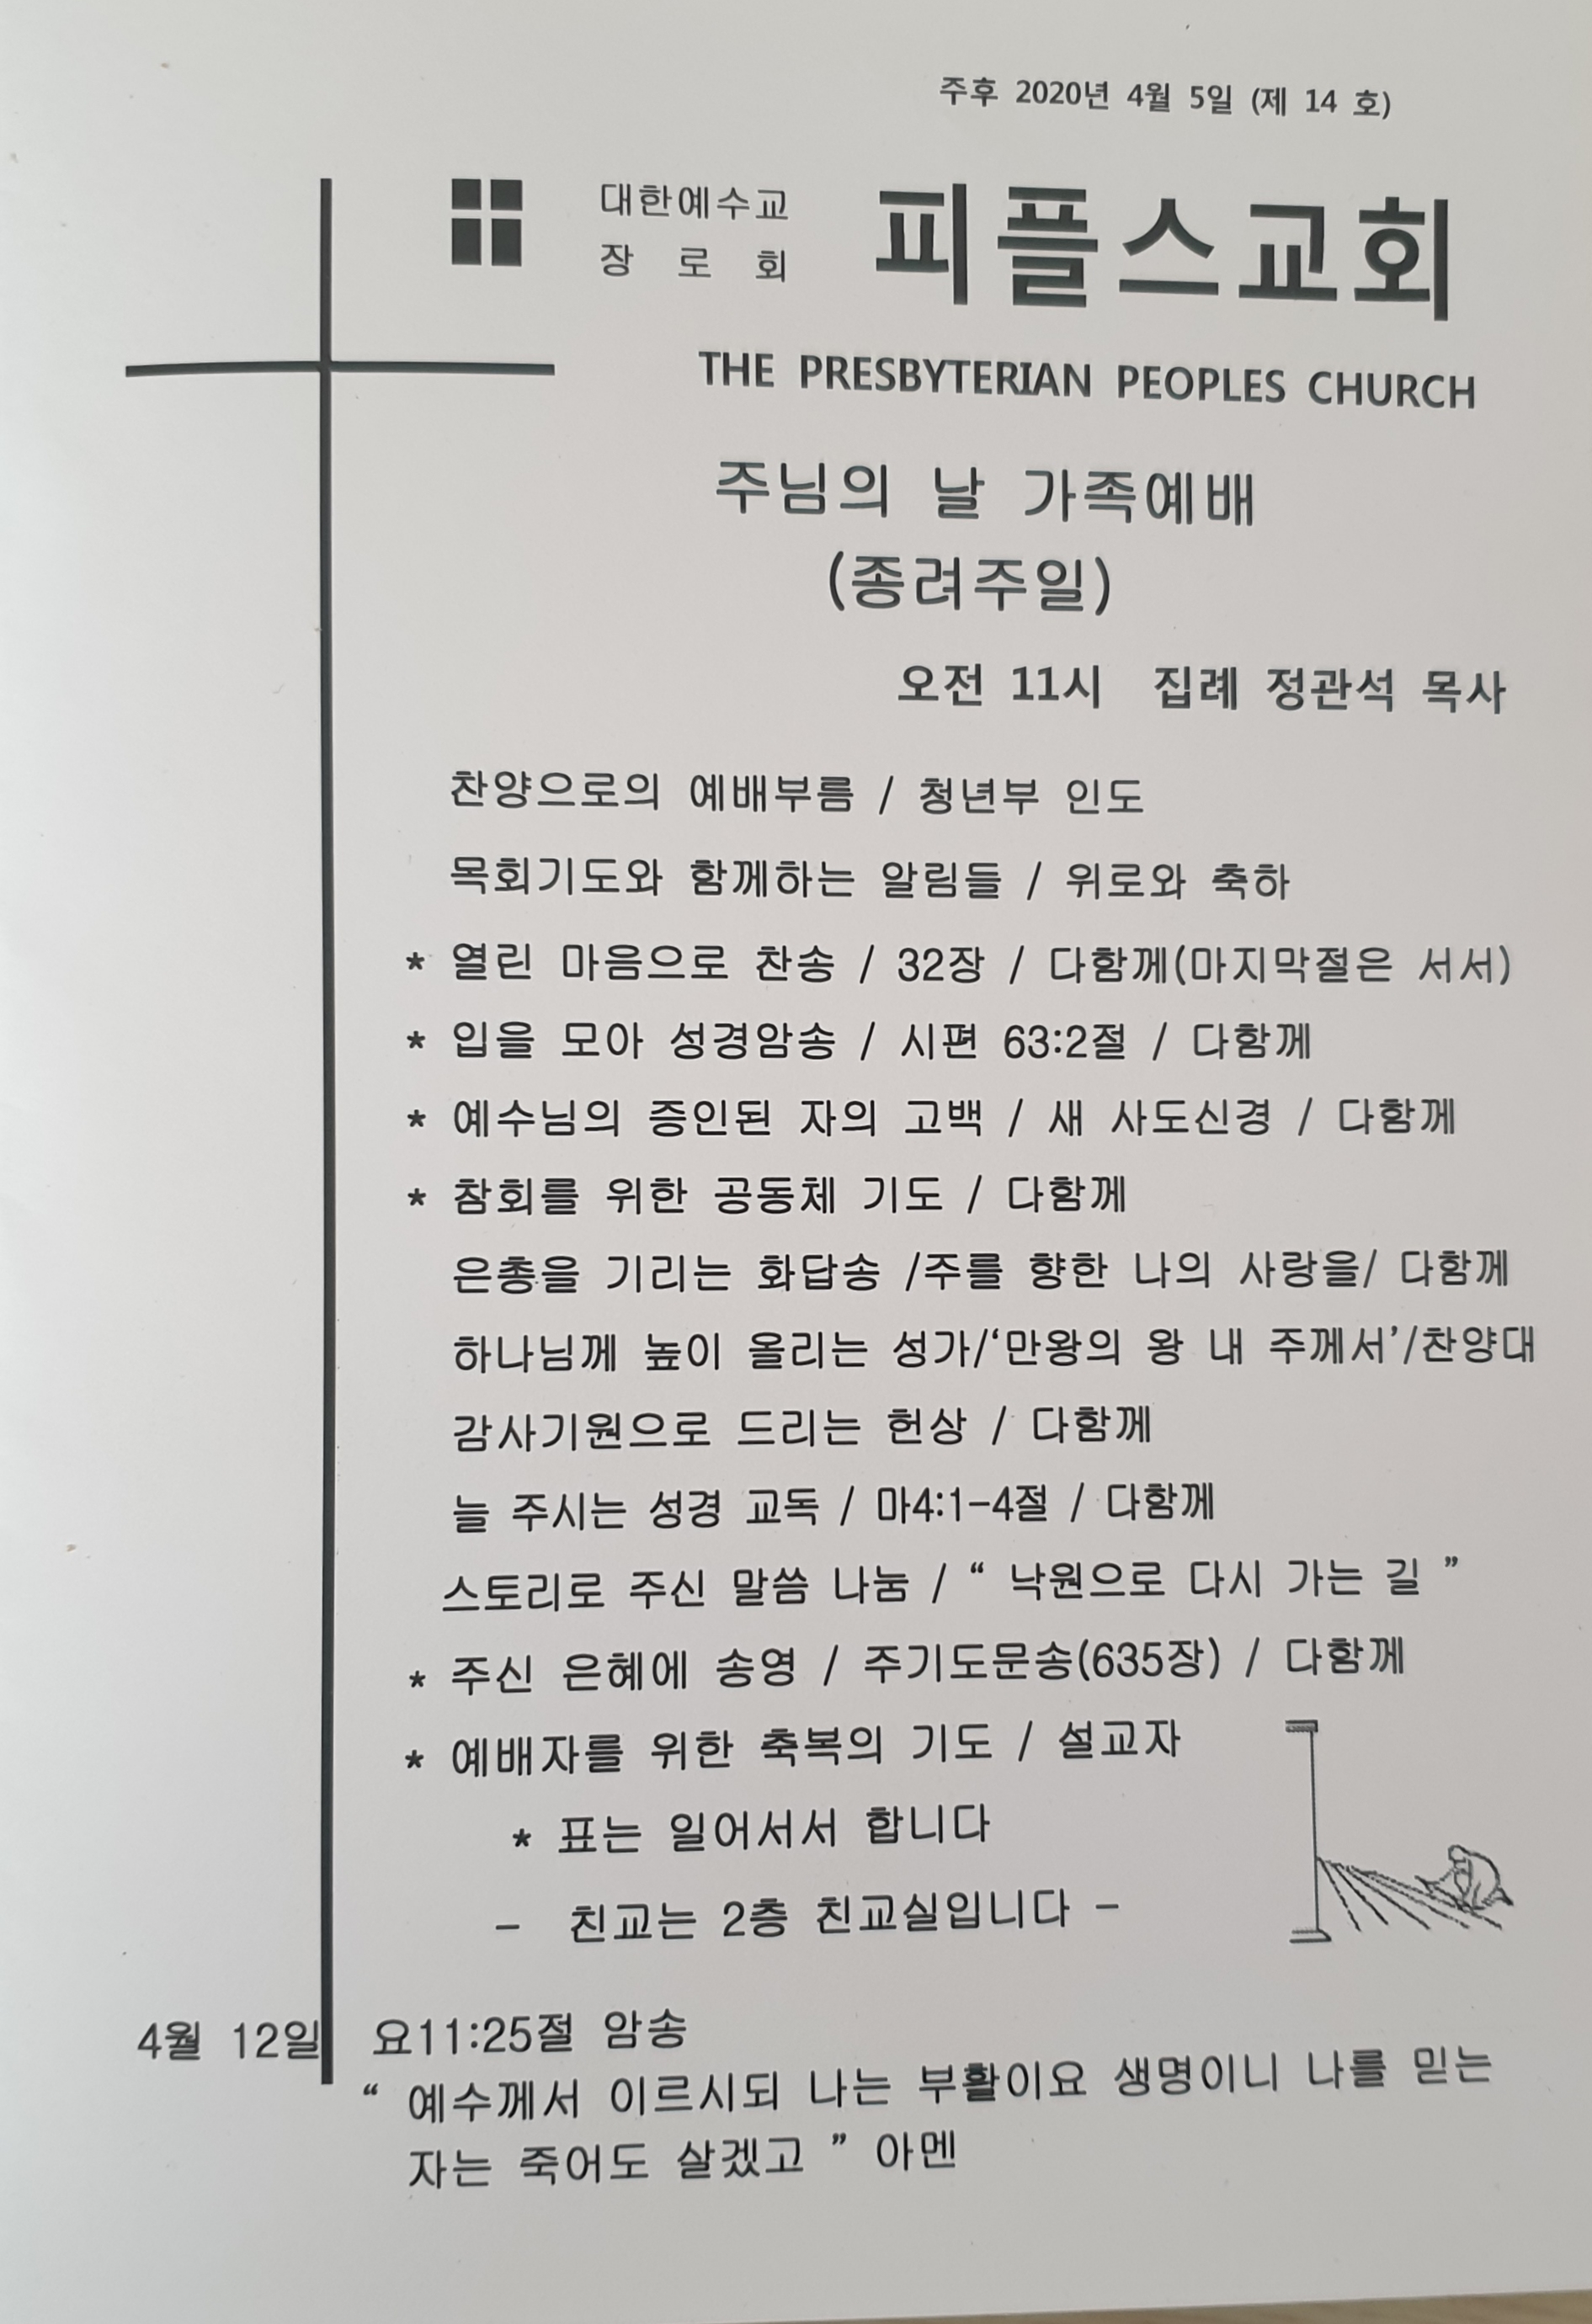 주후 2020년 4월 5일 (제 14 호)
대한예수교
장 로 회
피플스교회
THE PRESBYTERIAN PEOPLES CHURCH
주님의 날 가족예배
(종려주일)
오전 11시 집례 정관석 목사
찬양으로의 예배부름 / 청년부 인도
목회기도와 함께하는 알림들 / 위로와 축하
* 열린 마음으로 찬송 / 32장 / 다함께(마지막절은 서서)
* 입을 모아 성경암송 / 시편 63:2절 / 다함께
* 예수님의 증인된 자의 고백 / 새 사도신경 / 다함께
* 참회를 위한 공동체 기도 / 다함께
은총을 기리는 화답송 /주를 향한 나의 사랑을/ 다함께
하나님께 높이 올리는 성가/‘만왕의 왕 내 주께서’/찬양대
감사기원으로 드리는 헌상 / 다함께
늘 주시는 성경 교독 / 마4:1-4절 / 다함께
스토리로 주신 말씀 나눔 / “ 낙원으로 다시 가는 길 ”
* 주신 은혜에 송영 / 주기도문송(635장) / 다함께
* 예배자를 위한 축복의 기도 / 설교자
* 표는 일어서서 합니다
- 친교는 2층 친교실입니다 -
4월 12일 요11:25절 암송
“ 예수께서 이르시되 나는 부활이요 생명이니 나를 믿는
자는 죽어도 살겠고 ” 아멘